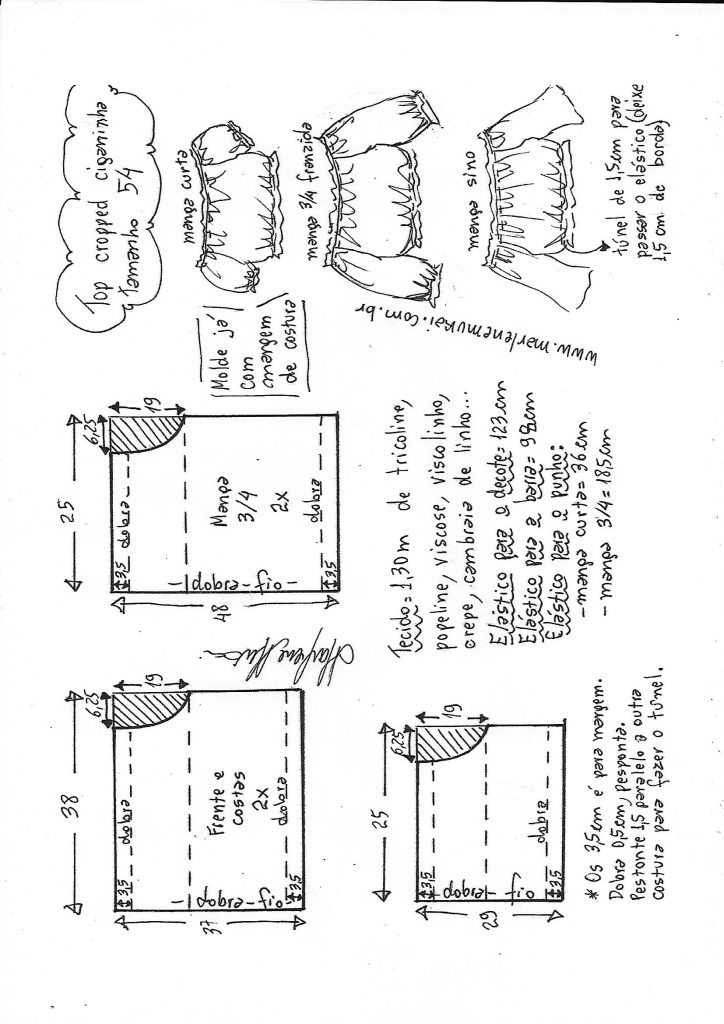 Top cropped ciganinha
Tamanho 54
manga curta
manga 3/4 franzida
manga sino
túnel de 1,5cm para
passar o elástico (deixe
1,5 cm de borda)
www.marlenemukai.com.br
Molde já
com
margem
de costura
38
6,25
19
3,5
dobra
Frente e
costas
2x
dobra
3,5
fio - dobra
37
25
6,25
19
3,5
dobra
Manga
3/4
2x
dobra
3,5
fio - dobra
48
Marlene Mukai
25
6,25
19
3,5
dobra
3,5
fio dobra
29
Tecido = 1,30m de tricoline,
popeline, viscose, viscolinho,
crepe, cambraia de linho...
Elástico para o decote = 123cm
Elástico para a barra = 98cm
Elástico para o punho:
- manga curta = 36cm
- manga 3/4 = 18,5cm
* Os 3,5cm é para margem.
Dobra 0,5cm, pesponta.
Pestonte 1,5 paralelo a outra
costura para fazer o túnel.